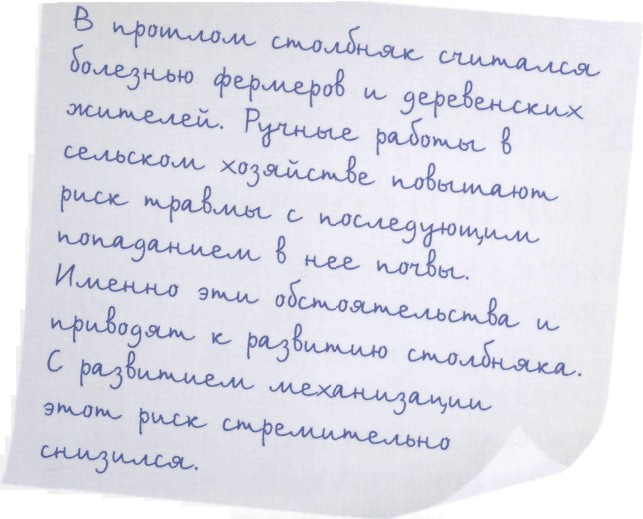 В прошлом столбняк считался
болезнью фермеров и деревенских
жителей. Ручные работы в
сельском хозяйстве повышают
риск травмы с последующим
попаданием в нее почвы.
Именно эти обстоятельства и
приводят к развитию столбняка.
С развитием механизации
этот риск стремительно
снизился.